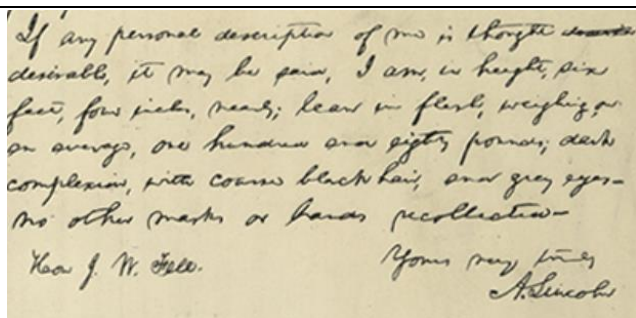 If any personal description of me is thought
desirable, it may be said, I am, in height, six
feet, four inches, nearly; lean in flesh, weighing, on
an average, one hundred and eighty pounds; dark
complexion, with coarse black hair, and grey eyes—
no other marks or brands recollected—
Hon J. W. Fell.
Yours very truly
A. Lincoln